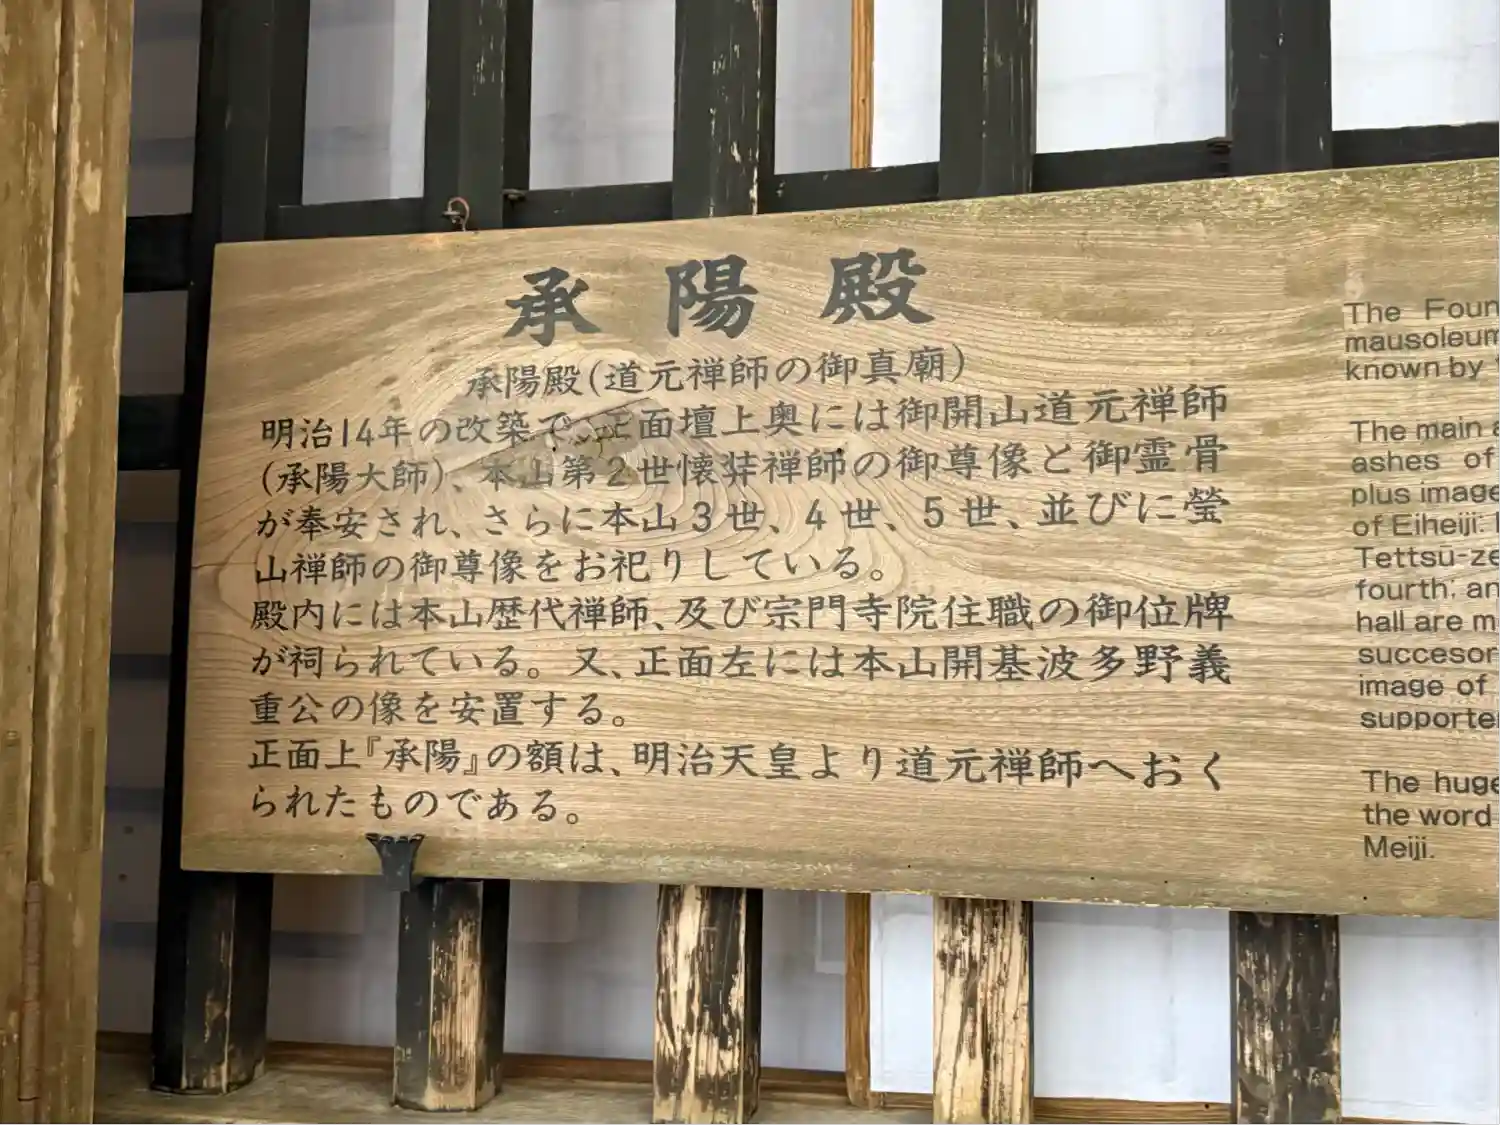 承陽殿
承陽殿(道元禅師の御真廟)
明治14年の改築で、正面壇上奥には御開山道元禅師
(承陽大師)、本山第2世懐弉禅師の御尊像と御霊骨
が奉安され、さらに本山3世、4世、5世、並びに瑩
山禅師の御尊像をお祀りしている。
殿内には本山歴代禅師、及び宗門寺院住職の御位牌
が祠られている。又、正面左には本山開基波多野義
重公の像を安置する。
正面上『承陽』の額は、明治天皇より道元禅師へおく
られたものである。
The Foun
mausoleum
known by
The main a
ashes of
plus image
of Eiheiji:
Tettsū-ze
fourth; an
hall are m
succesor
image of
supporte
The huge
the word
Meiji.